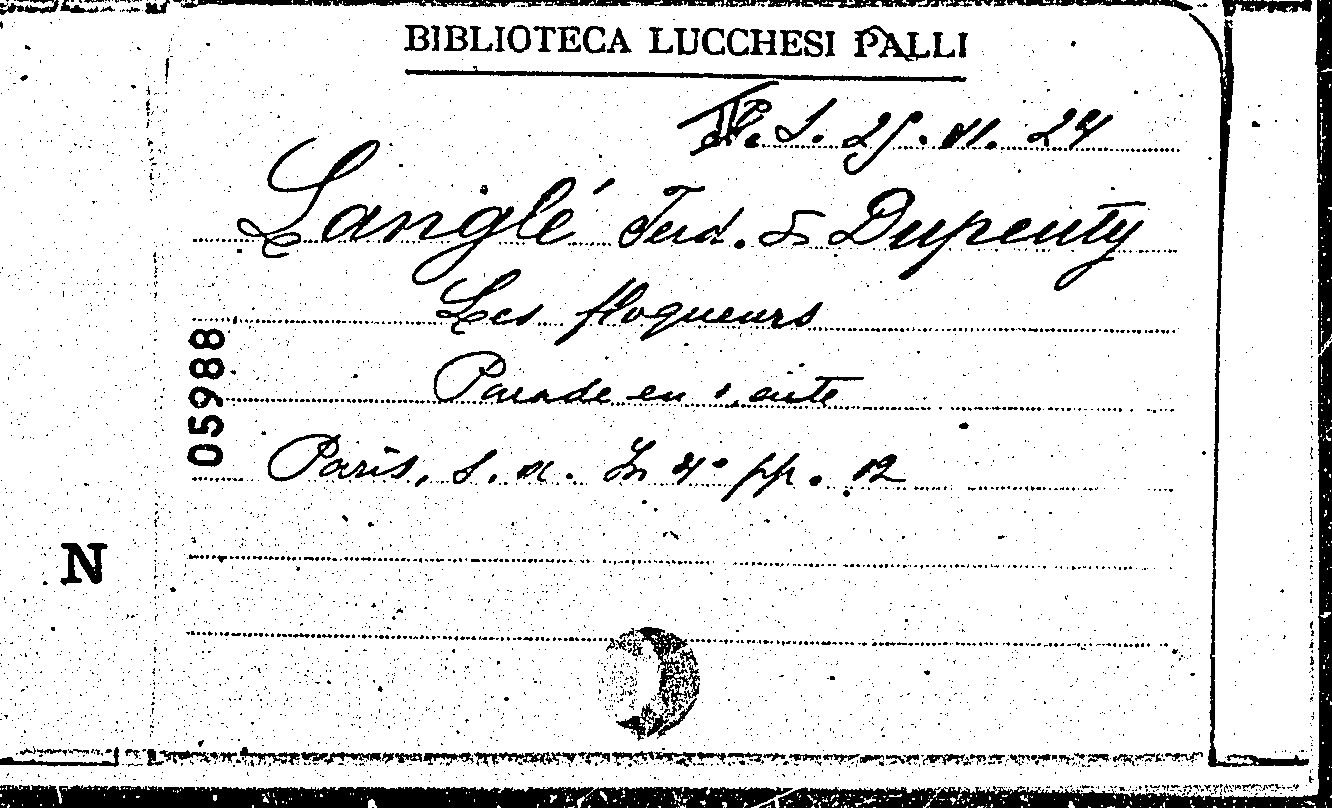 BIBLIOTECA LUCCHESI PALLI
S. 25. VI. 24
Langlé Ferd. & Dupeuty
Les floqueurs
Parade en 1 acte
Paris, s. a. In 4° pp. 12
05988
N